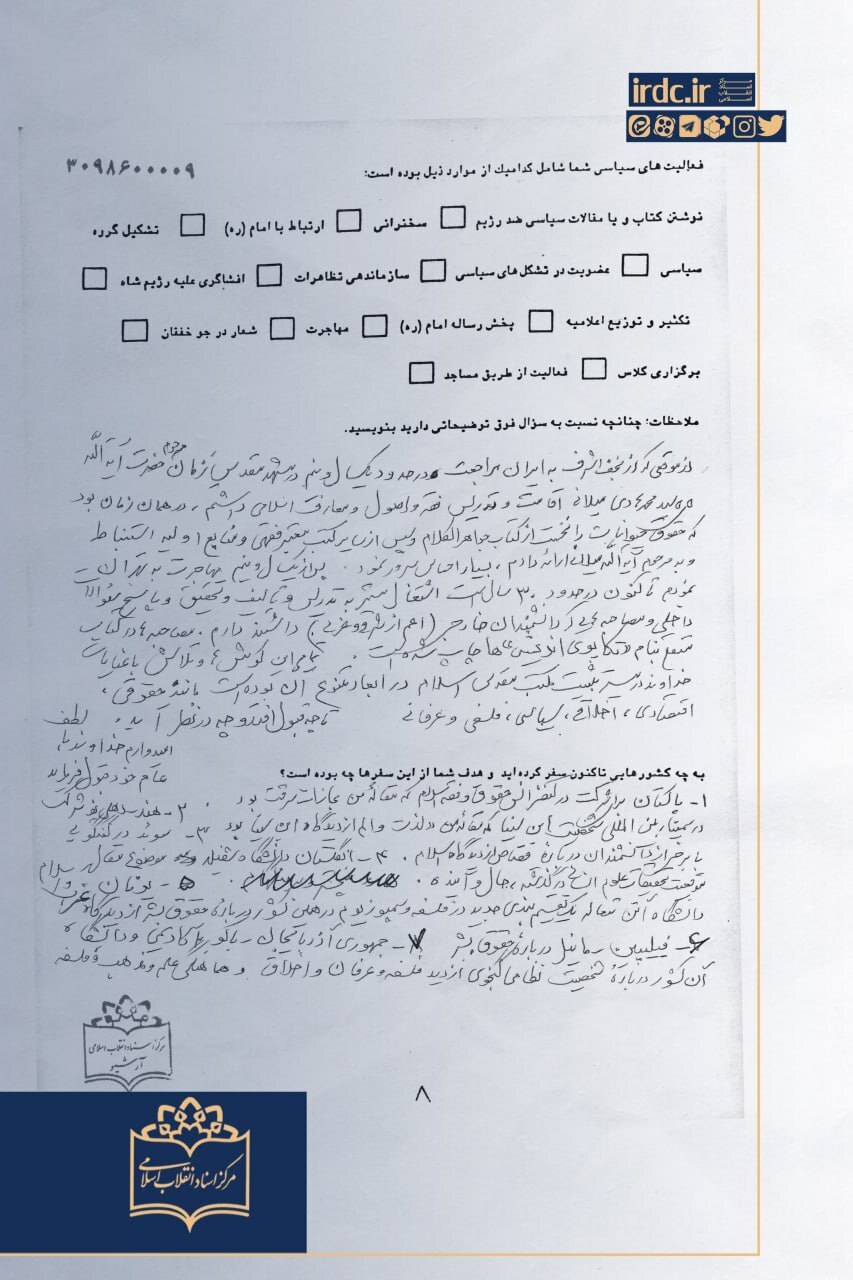 irdc.ir
مرکز
اسناد
انقلاب
اسلامی
۳۰۹۸۶۰۰۰۰۹
فعالیت های سیاسی شما شامل کدامیك از موارد ذیل بوده است:
نوشتن کتاب و یا مقالات سیاسی ضد رژیم سخنرانی ارتباط با امام (ره) تشکیل گروه
سیاسی عضویت در تشکل های سیاسی سازماندهی تظاهرات افشاگری علیه رژیم شاه
تکثیر و توزیع اعلامیه پخش رساله امام (ره) مهاجرت شعار در جو خفقان
برگزاری کلاس فعالیت از طریق مساجد
ملاحظات: چنانچه نسبت به سؤال فوق توضیحاتی دارید بنویسید.
از موقعی که از نجف اشرف به ایران مراجعت در حدود یکسال و نیم در مشهد مقدس زمان مرحوم حضرت آیة الله
سید محمد هادی میلانی اقامت و تدریس فقه و اصول و معارف اسلامی داشتم، در همان زمان بود
که حقوق حیوانات را نخست از کتاب جواهر الکلام و سپس از سایر کتب معتبر فقهی و منابع اولیه استنباط
و به مرحوم آیة الله میلانی ارائه دادم، بسیار احساس سرور نمود. پس از یکسال و نیم مهاجرت به تهران
نمودم تاکنون در حدود ۳۰ سال است اشتغال به تدریس و تألیف و تحقیق و پاسخ سؤالات
داخلی و مصاحبه از دانشمندان خارجی (اعم از شرقی و غربی) داشته و دارم. مصاحبه ها در کتاب
بنام تکاپوی اندیشه ها چاپ شده است. تمامی این کوششها و تلاش با عنایات
خداوند در مسیر تثبیت مکتب مقدس اسلام در ابعاد متنوع آن بوده است مانند حقوقی،
اقتصادی، اخلاقی، سیاسی، فلسفی و عرفانی تا چه قبول افتد و چه در نظر آید. لطف
امیدوارم خداوند
خود قبول فرماید
به چه کشورهایی تاکنون سفر کرده اید و هدف شما از این سفرها چه بوده است؟
۱- پاکستان برای شرکت در کنفرانس حقوق و فقه اسلام که مقاله من مجازات سرقت بود. ۲- هند
در سمینار بین المللی شخصیت ابن سینا که مقاله من لذت و الم از دیدگاه ابن سینا بود ۳- سوئد در گفتگویی
با برخی از دانشمندان درباره قصاص از دیدگاه اسلام. ۴- انگلستان دانشگاه موضوع مقاله اسلام
موقعیت تحقیقات علوم انسانی در گذشته، حال و آینده. ۵- یونان
دانشگاه آتن مقاله تقسیم بندی جدید در فلسفه و سمپوزیوم در همین کشور درباره حقوق بشر از دیدگاه
۶- فیلیپین مانیل درباره حقوق بشر ۷- جمهوری آذربایجان باکو آکادمی و دانشگاه
آن کشور درباره شخصیت نظامی گنجوی از دید فلسفه و عرفان و اخلاق و هماهنگی علم و مذهب و فلسفه
مرکز اسناد انقلاب اسلامی
آرشیو
۸
مرکز اسناد انقلاب اسلامی